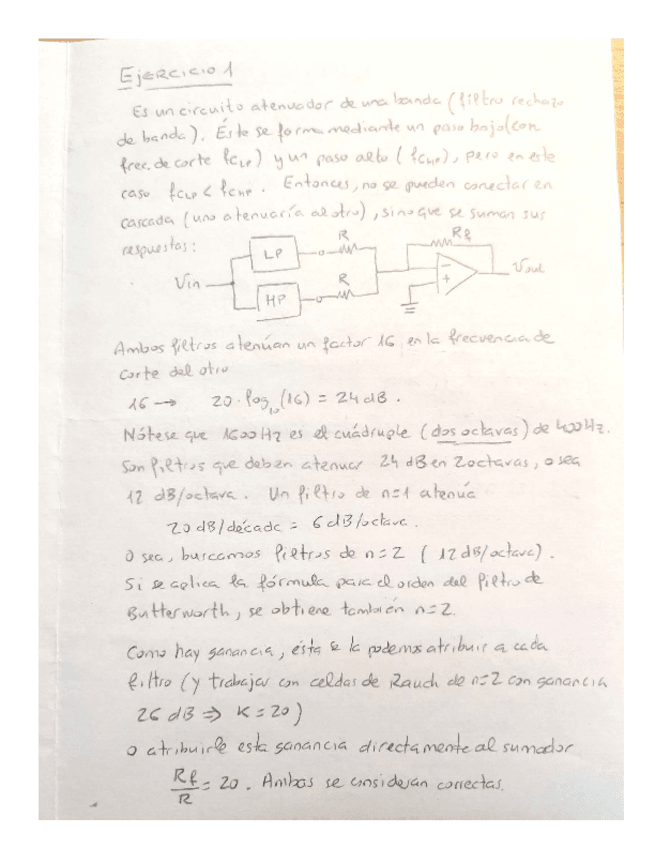 Ejercicio 1
Es un circuito atenuador de una banda (filtro rechazo
de banda). Éste se forma mediante un paso bajo (con
frec. de corte fcLP) y un paso alto (fcHP), pero en este
caso fcLP < fcHP. Entonces, no se pueden conectar en
cascada (uno atenuaría al otro), sino que se suman sus
respuestas:
R
Rf
LP
Vin
Vout
R
HP
Ambos filtros atenúan un factor 16 en la frecuencia de
corte del otro
16 → 20·log10(16) = 24 dB.
Nótese que 1600Hz es el cuádruple (dos octavas) de 400Hz.
Son filtros que deben atenuar 24 dB en 2 octavas, o sea
12 dB/octava. Un filtro de n=1 atenúa
20 dB/década = 6 dB/octava.
O sea, buscamos filtros de n=2 (12 dB/octava).
Si se aplica la fórmula para el orden del filtro de
Butterworth, se obtiene también n=2.
Como hay ganancia, ésta se la podemos atribuir a cada
filtro (y trabajar con celdas de Rauch de n=2 con ganancia
26 dB ⇒ K=20)
o atribuirle esta ganancia directamente al sumador
Rf/R = 20. Ambas se consideran correctas.